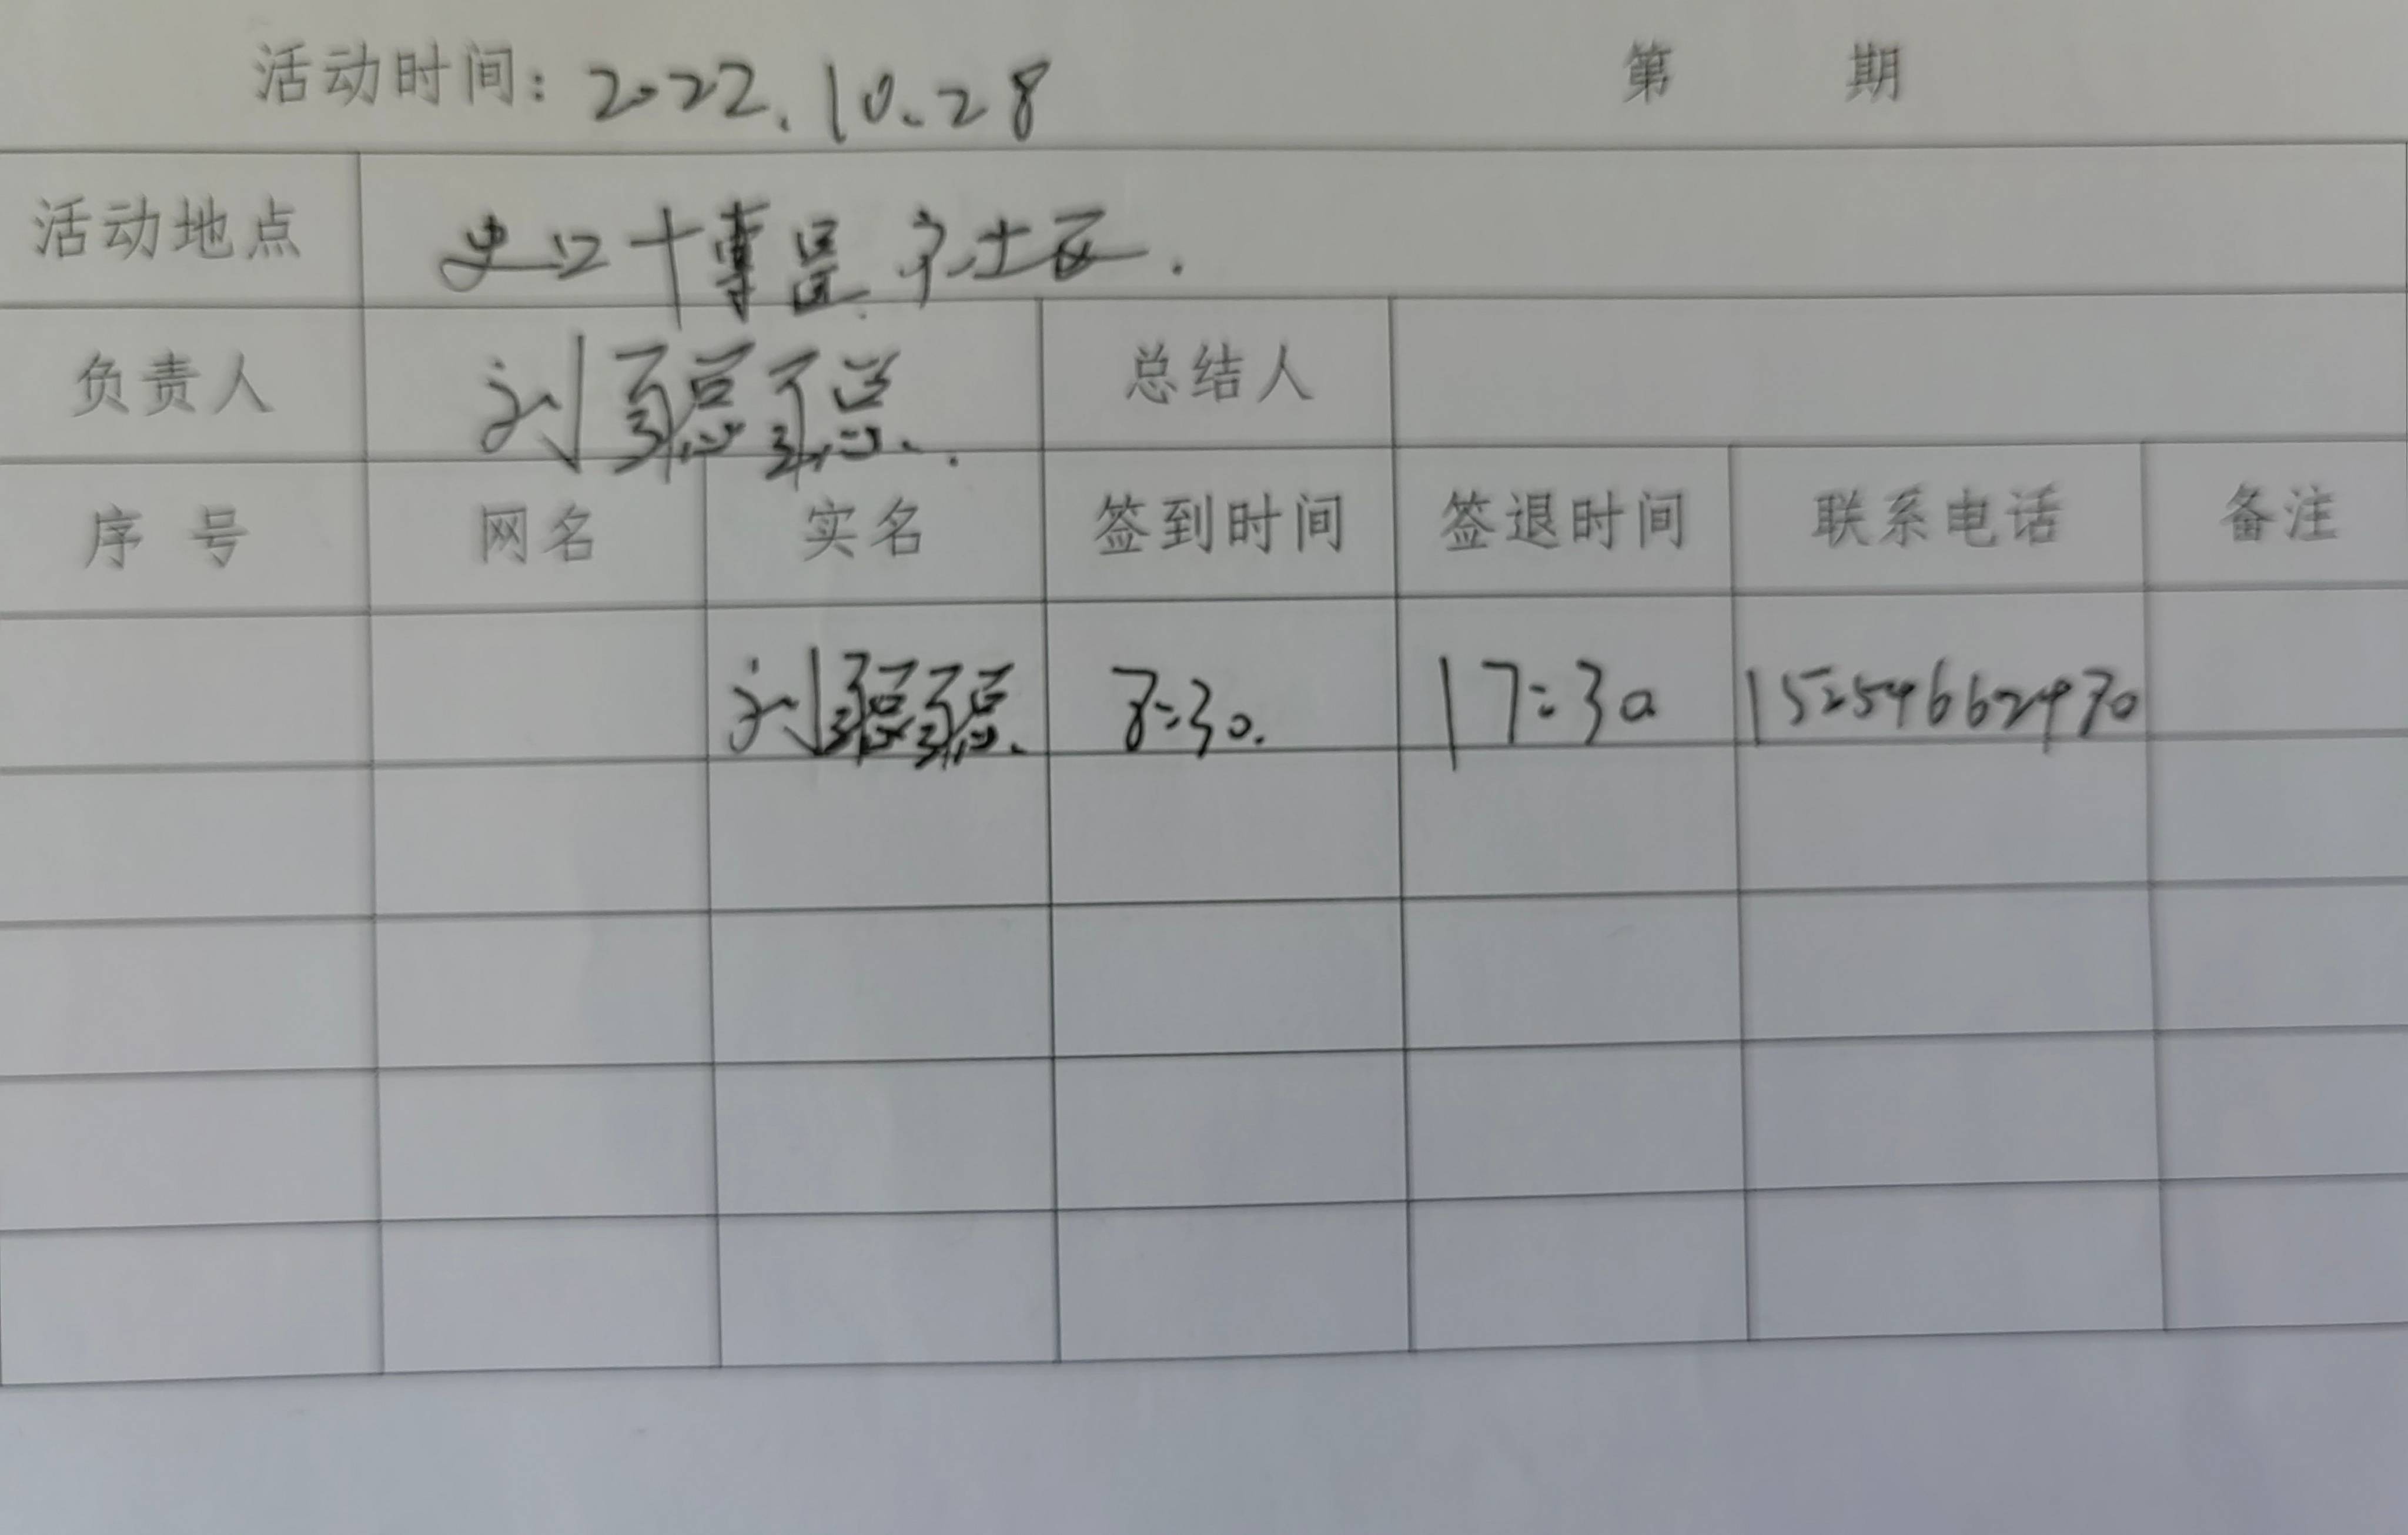 活动时间: 2022.10.28 第 期
活动地点 史口十博昌宁社区.
负责人 刘聪聪. 总结人
序 号 网名 实名 签到时间 签退时间 联系电话 备注
刘聪聪. 8:30. 17:30 15254662470